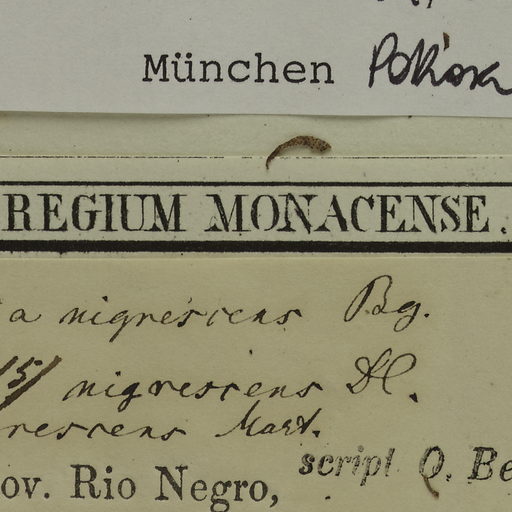 München
REGIUM MONACENSE.
a nigrescens Bg.
15/ nigrescens DC.
rescens Mart.
ov. Rio Negro,
script O. Be